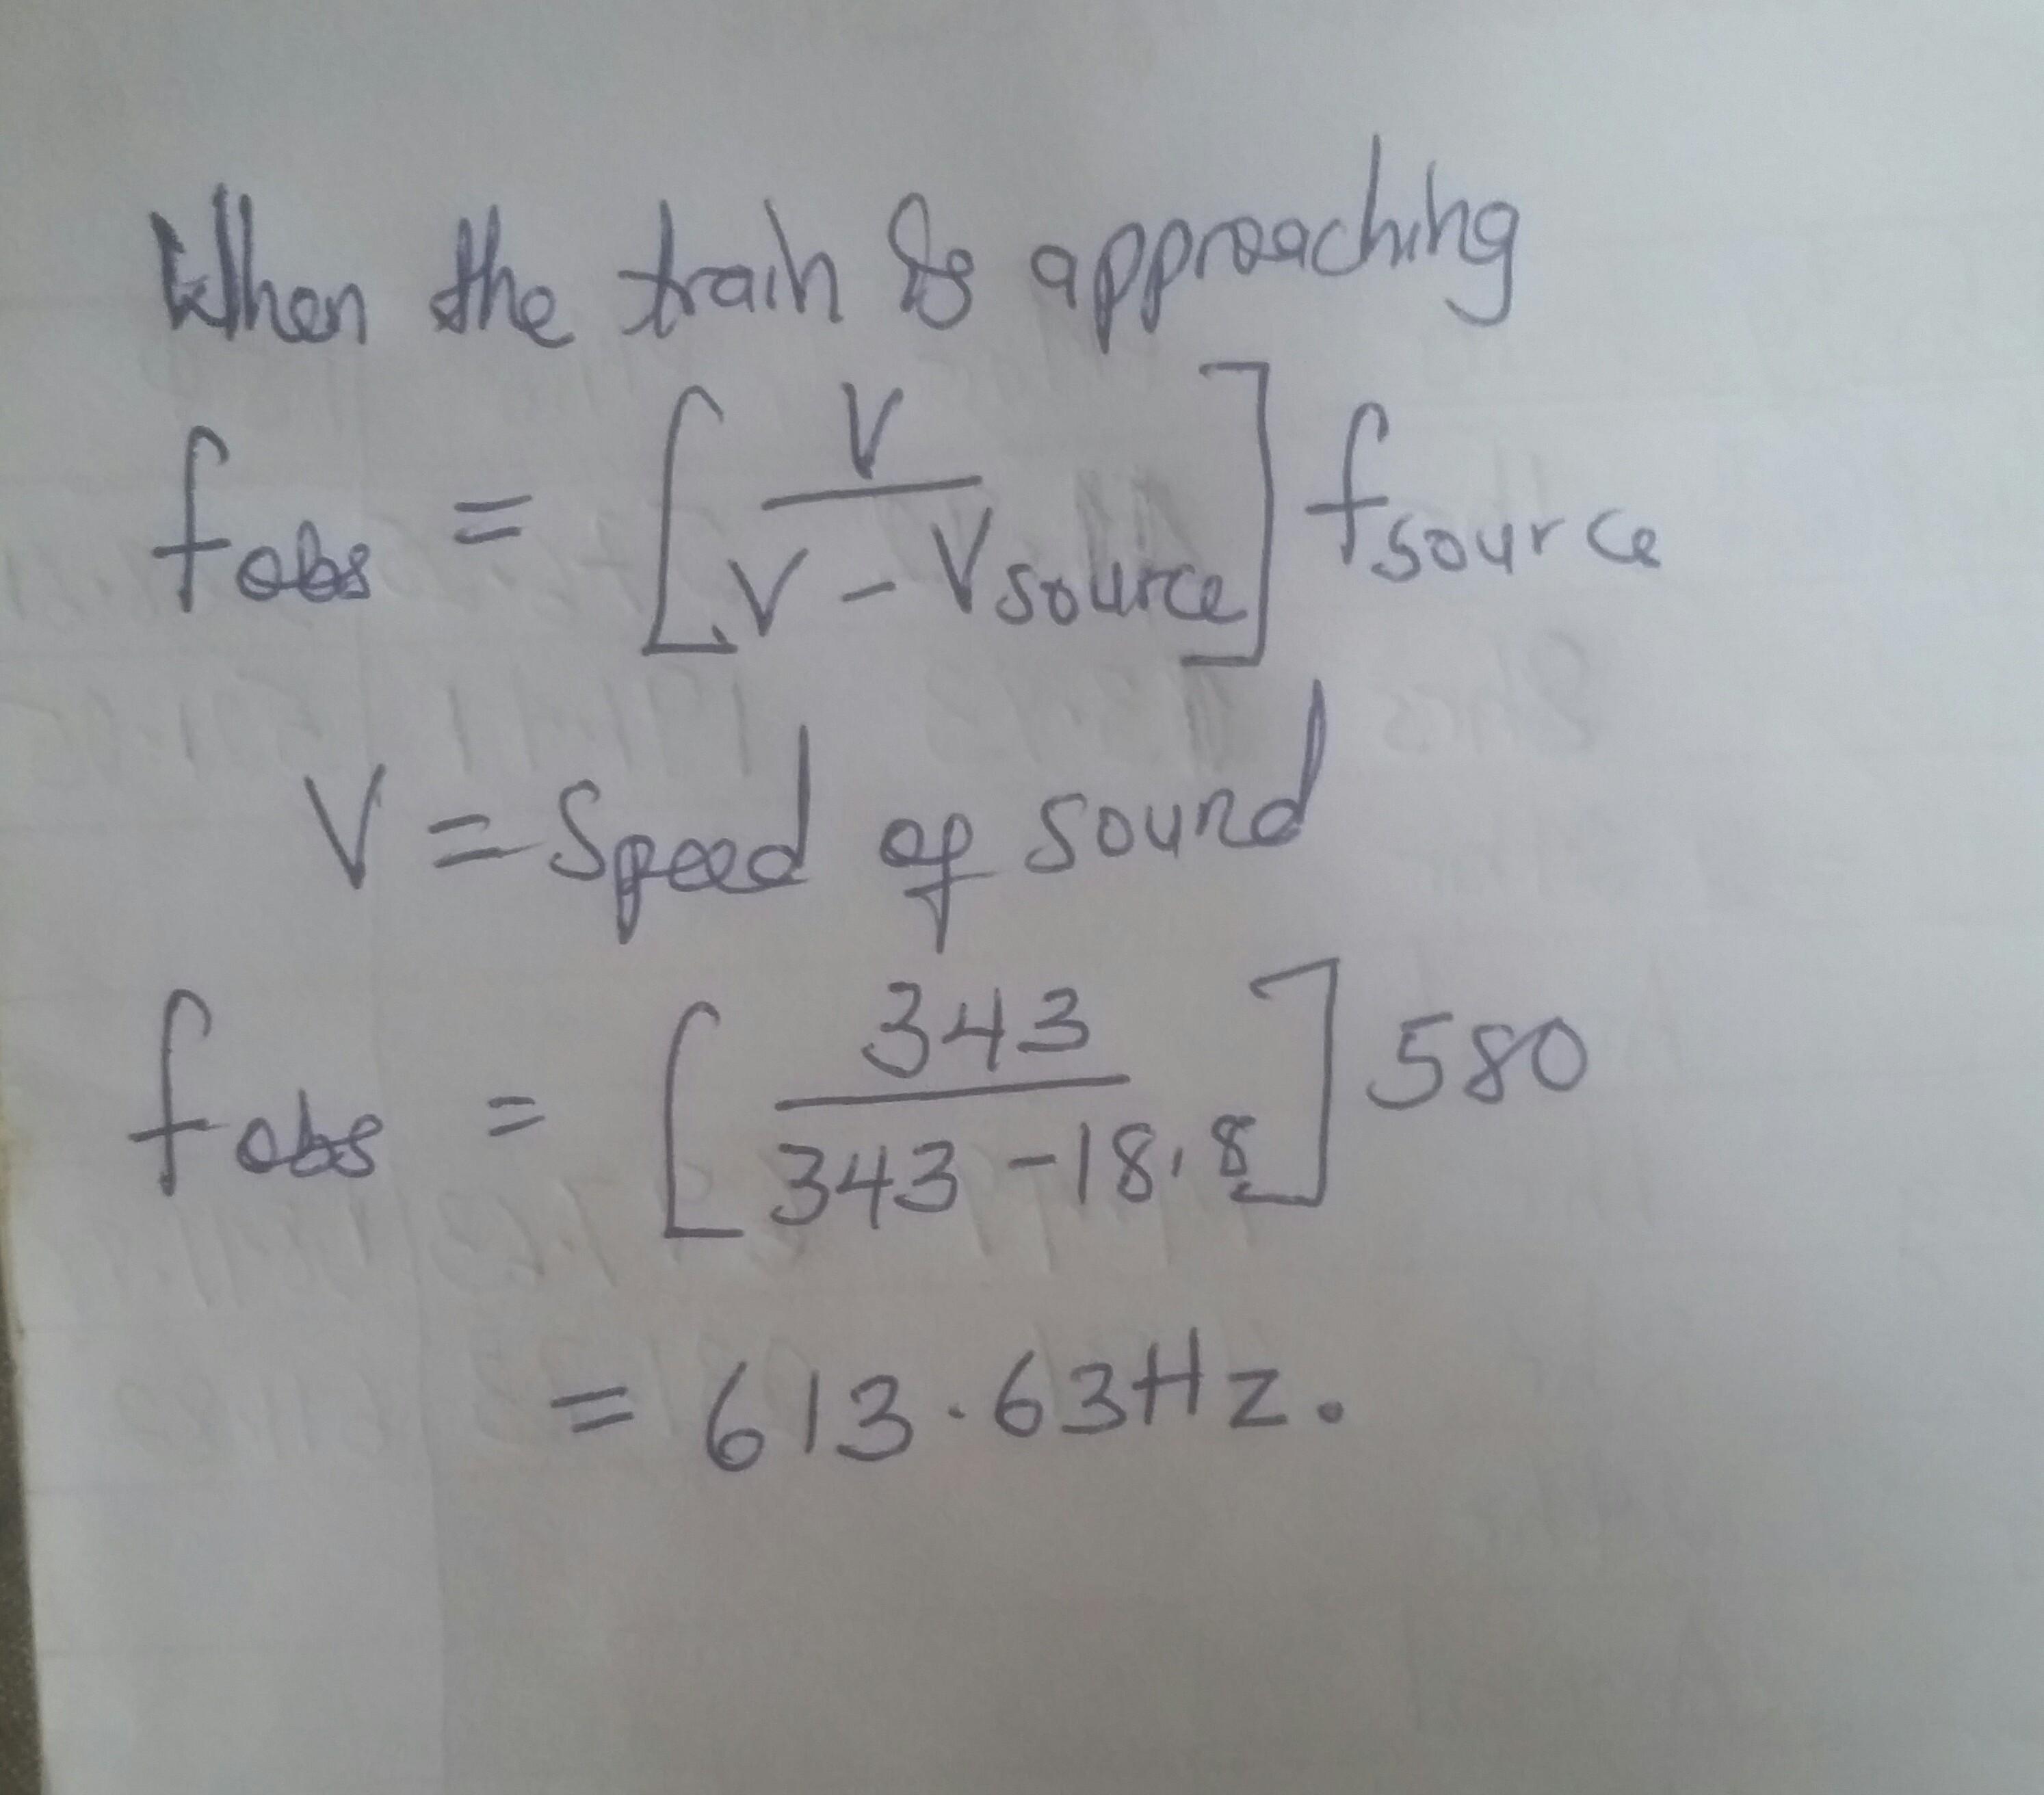 When the train is approaching
f obs = [ V / V - V source ] f source
V = Speed of sound
f obs = [ 343 / 343 - 18.8 ] 580
= 613.63Hz.